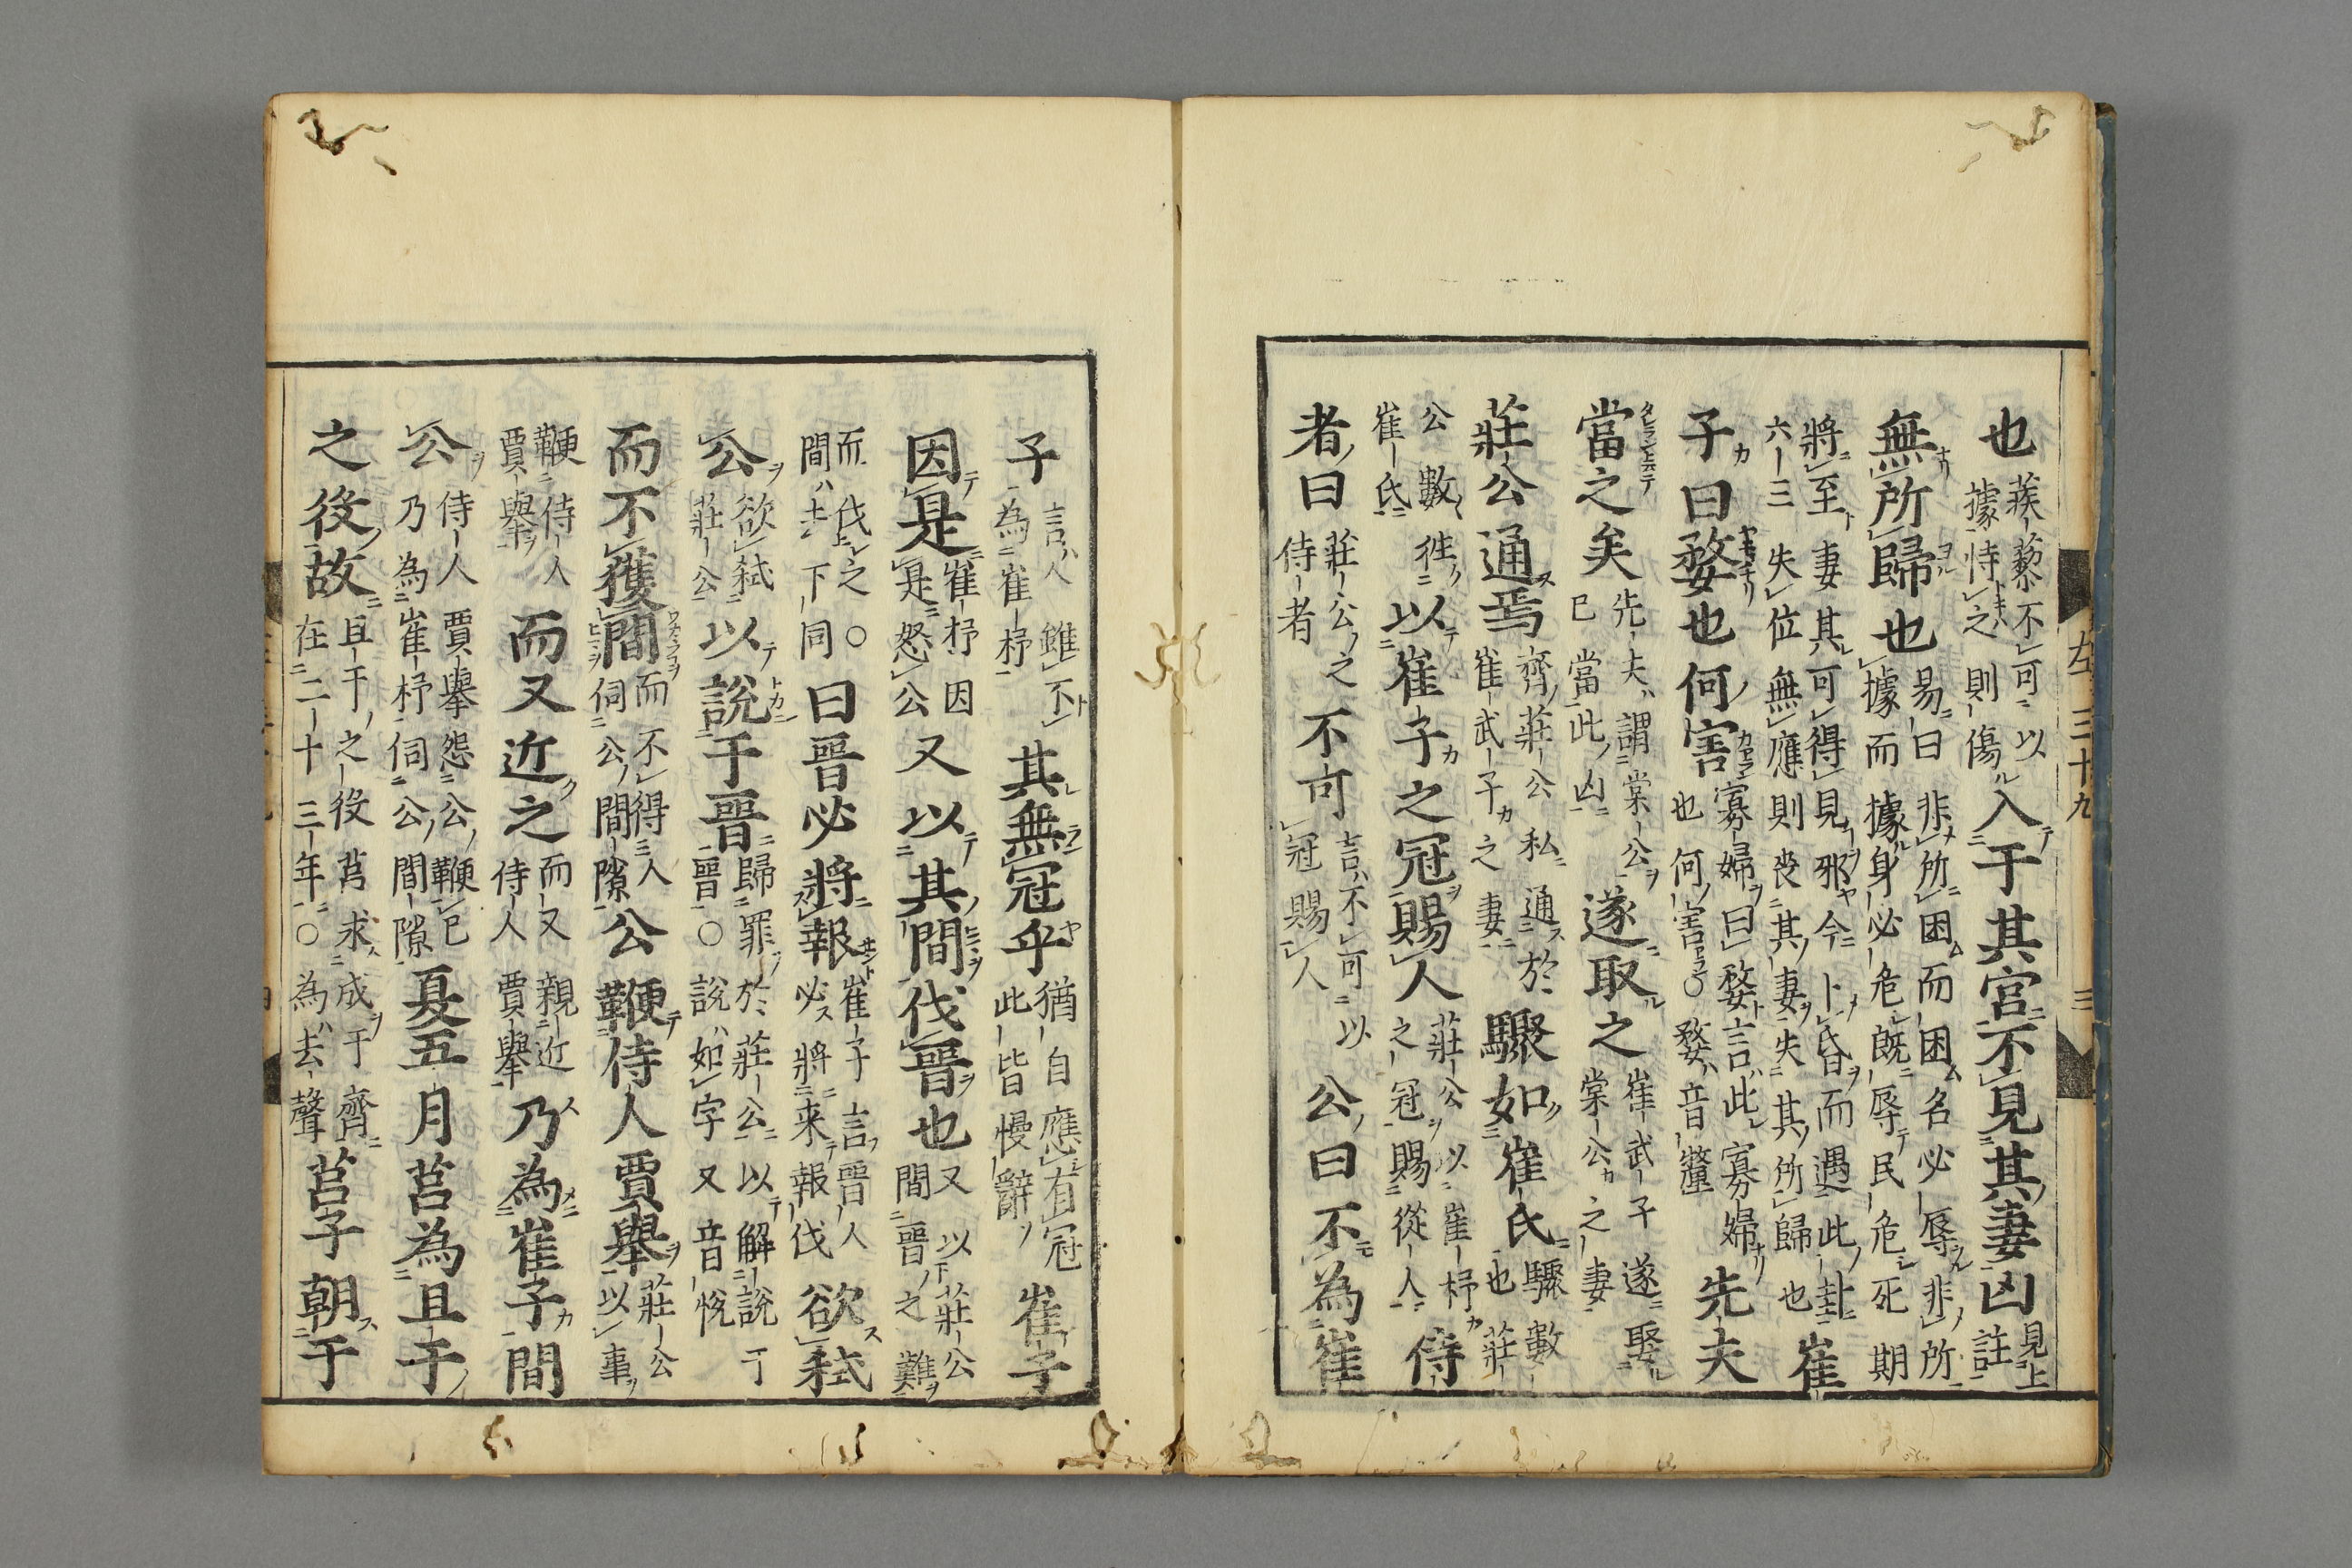 左三十九　三
也蒺藜不可以據恃之則傷入于其宮不見其妻凶見上註
無所歸也易曰非所困而困名必辱非所據而據身必危既辱民危死期
將至妻其可得見邪今卜昏而遇此卦六三失位無應則喪其妻失其所歸也崔
子曰嫠也何害寡婦曰嫠言此寡婦也何害○嫠音釐先夫
當之矣先夫謂棠公已當此凶遂取之崔武子遂娶棠公之妻
莊公通焉齊莊公私通於崔武子之妻驟如崔氏驟數也莊
公數徃崔氏以崔子之冠賜人莊公以崔杼之冠賜從人侍
者曰莊公之侍者不可言不可以冠賜人公曰不為崔
子言人雖不為崔杼其無冠乎猶自應有冠此皆慢辭崔子
因是崔杼因是怒公又以其間伐晉也又以莊公間晉之難
而伐之○間去下同曰晉必將報崔子言晉人必將来報伐欲弒
公欲弒莊公以說于晉歸罪於莊公以解說于晉○說如字又音悅
而不獲間而不得人伺公間隙公鞭侍人賈舉莊公以事
鞭侍人賈舉而又近之而又親近侍人賈舉乃為崔子間
公侍人賈舉怨公鞭已乃為崔杼伺公間隙夏五月莒為且于
之役故且于之役莒求成于齊在二十三年○為去聲莒子朝于